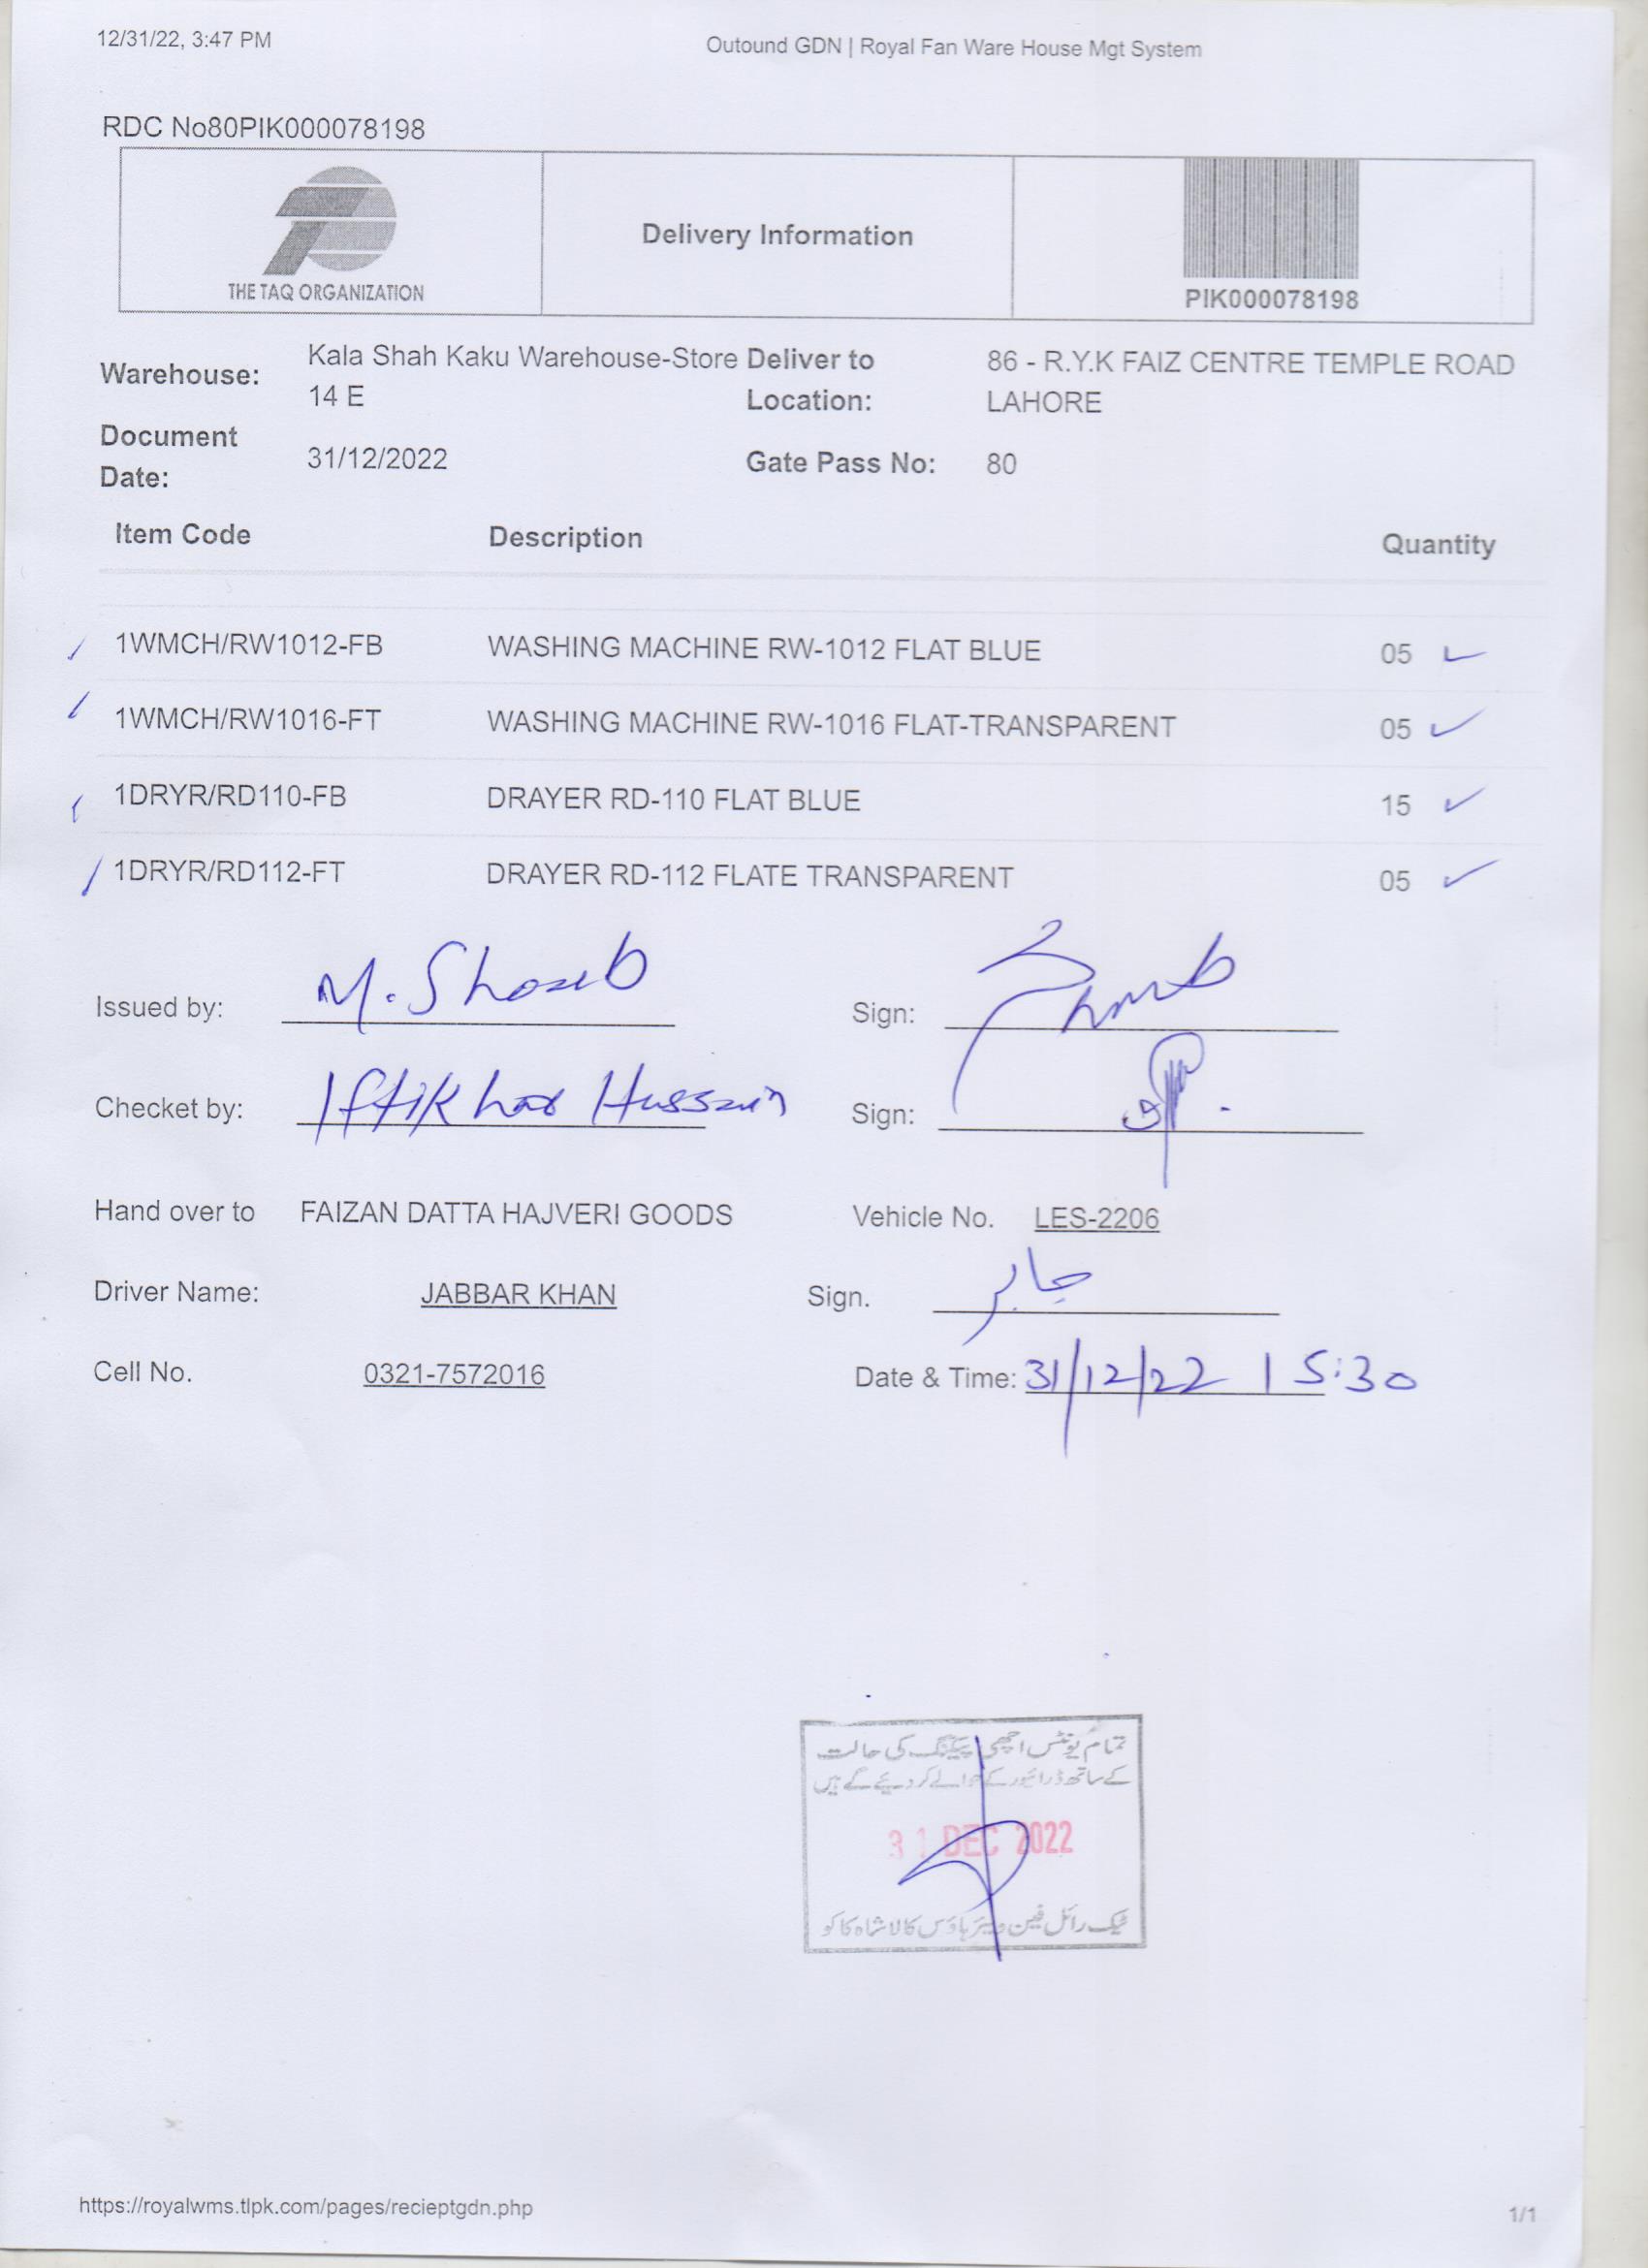 12/31/22, 3:47 PM
Outound GDN | Royal Fan Ware House Mgt System
RDC No80PIK000078198
THE TAQ ORGANIZATION
Delivery Information
PIK000078198
Warehouse: Kala Shah Kaku Warehouse-Store 14 E
Deliver to Location: 86 - R.Y.K FAIZ CENTRE TEMPLE ROAD LAHORE
Document Date: 31/12/2022
Gate Pass No: 80
Item Code Description Quantity
1WMCH/RW1012-FB WASHING MACHINE RW-1012 FLAT BLUE 05
1WMCH/RW1016-FT WASHING MACHINE RW-1016 FLAT-TRANSPARENT 05
1DRYR/RD110-FB DRAYER RD-110 FLAT BLUE 15
1DRYR/RD112-FT DRAYER RD-112 FLATE TRANSPARENT 05
Issued by: M. Shoaib Sign:
Checket by: Iftikhar Hussain Sign:
Hand over to FAIZAN DATTA HAJVERI GOODS Vehicle No. LES-2206
Driver Name: JABBAR KHAN Sign. جابر
Cell No. 0321-7572016 Date & Time: 31/12/22 15:30
تمام یونٹس اچھی پیکنگ کی حالت
کے ساتھ ڈرائیور کے حوالے کر دیئے گے ہیں
31 DEC 2022
ٹیک رائل فین ویئر ہاؤس کالا شاہ کاکو
https://royalwms.tlpk.com/pages/recieptgdn.php
1/1